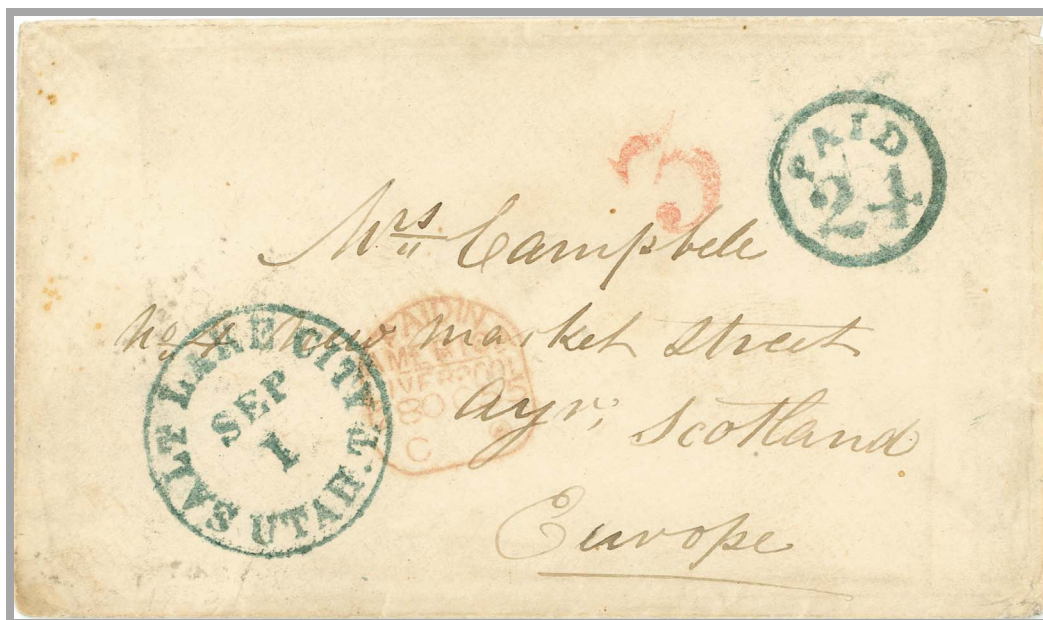 PAID
24
5
Mrs Campbell
No 4 New Market Street
Ayr, Scotland
Europe
SALT LAKE CITY
UTAH.T.
SEP
1
PAID IN
AMERICA
LIVERPOOL
C